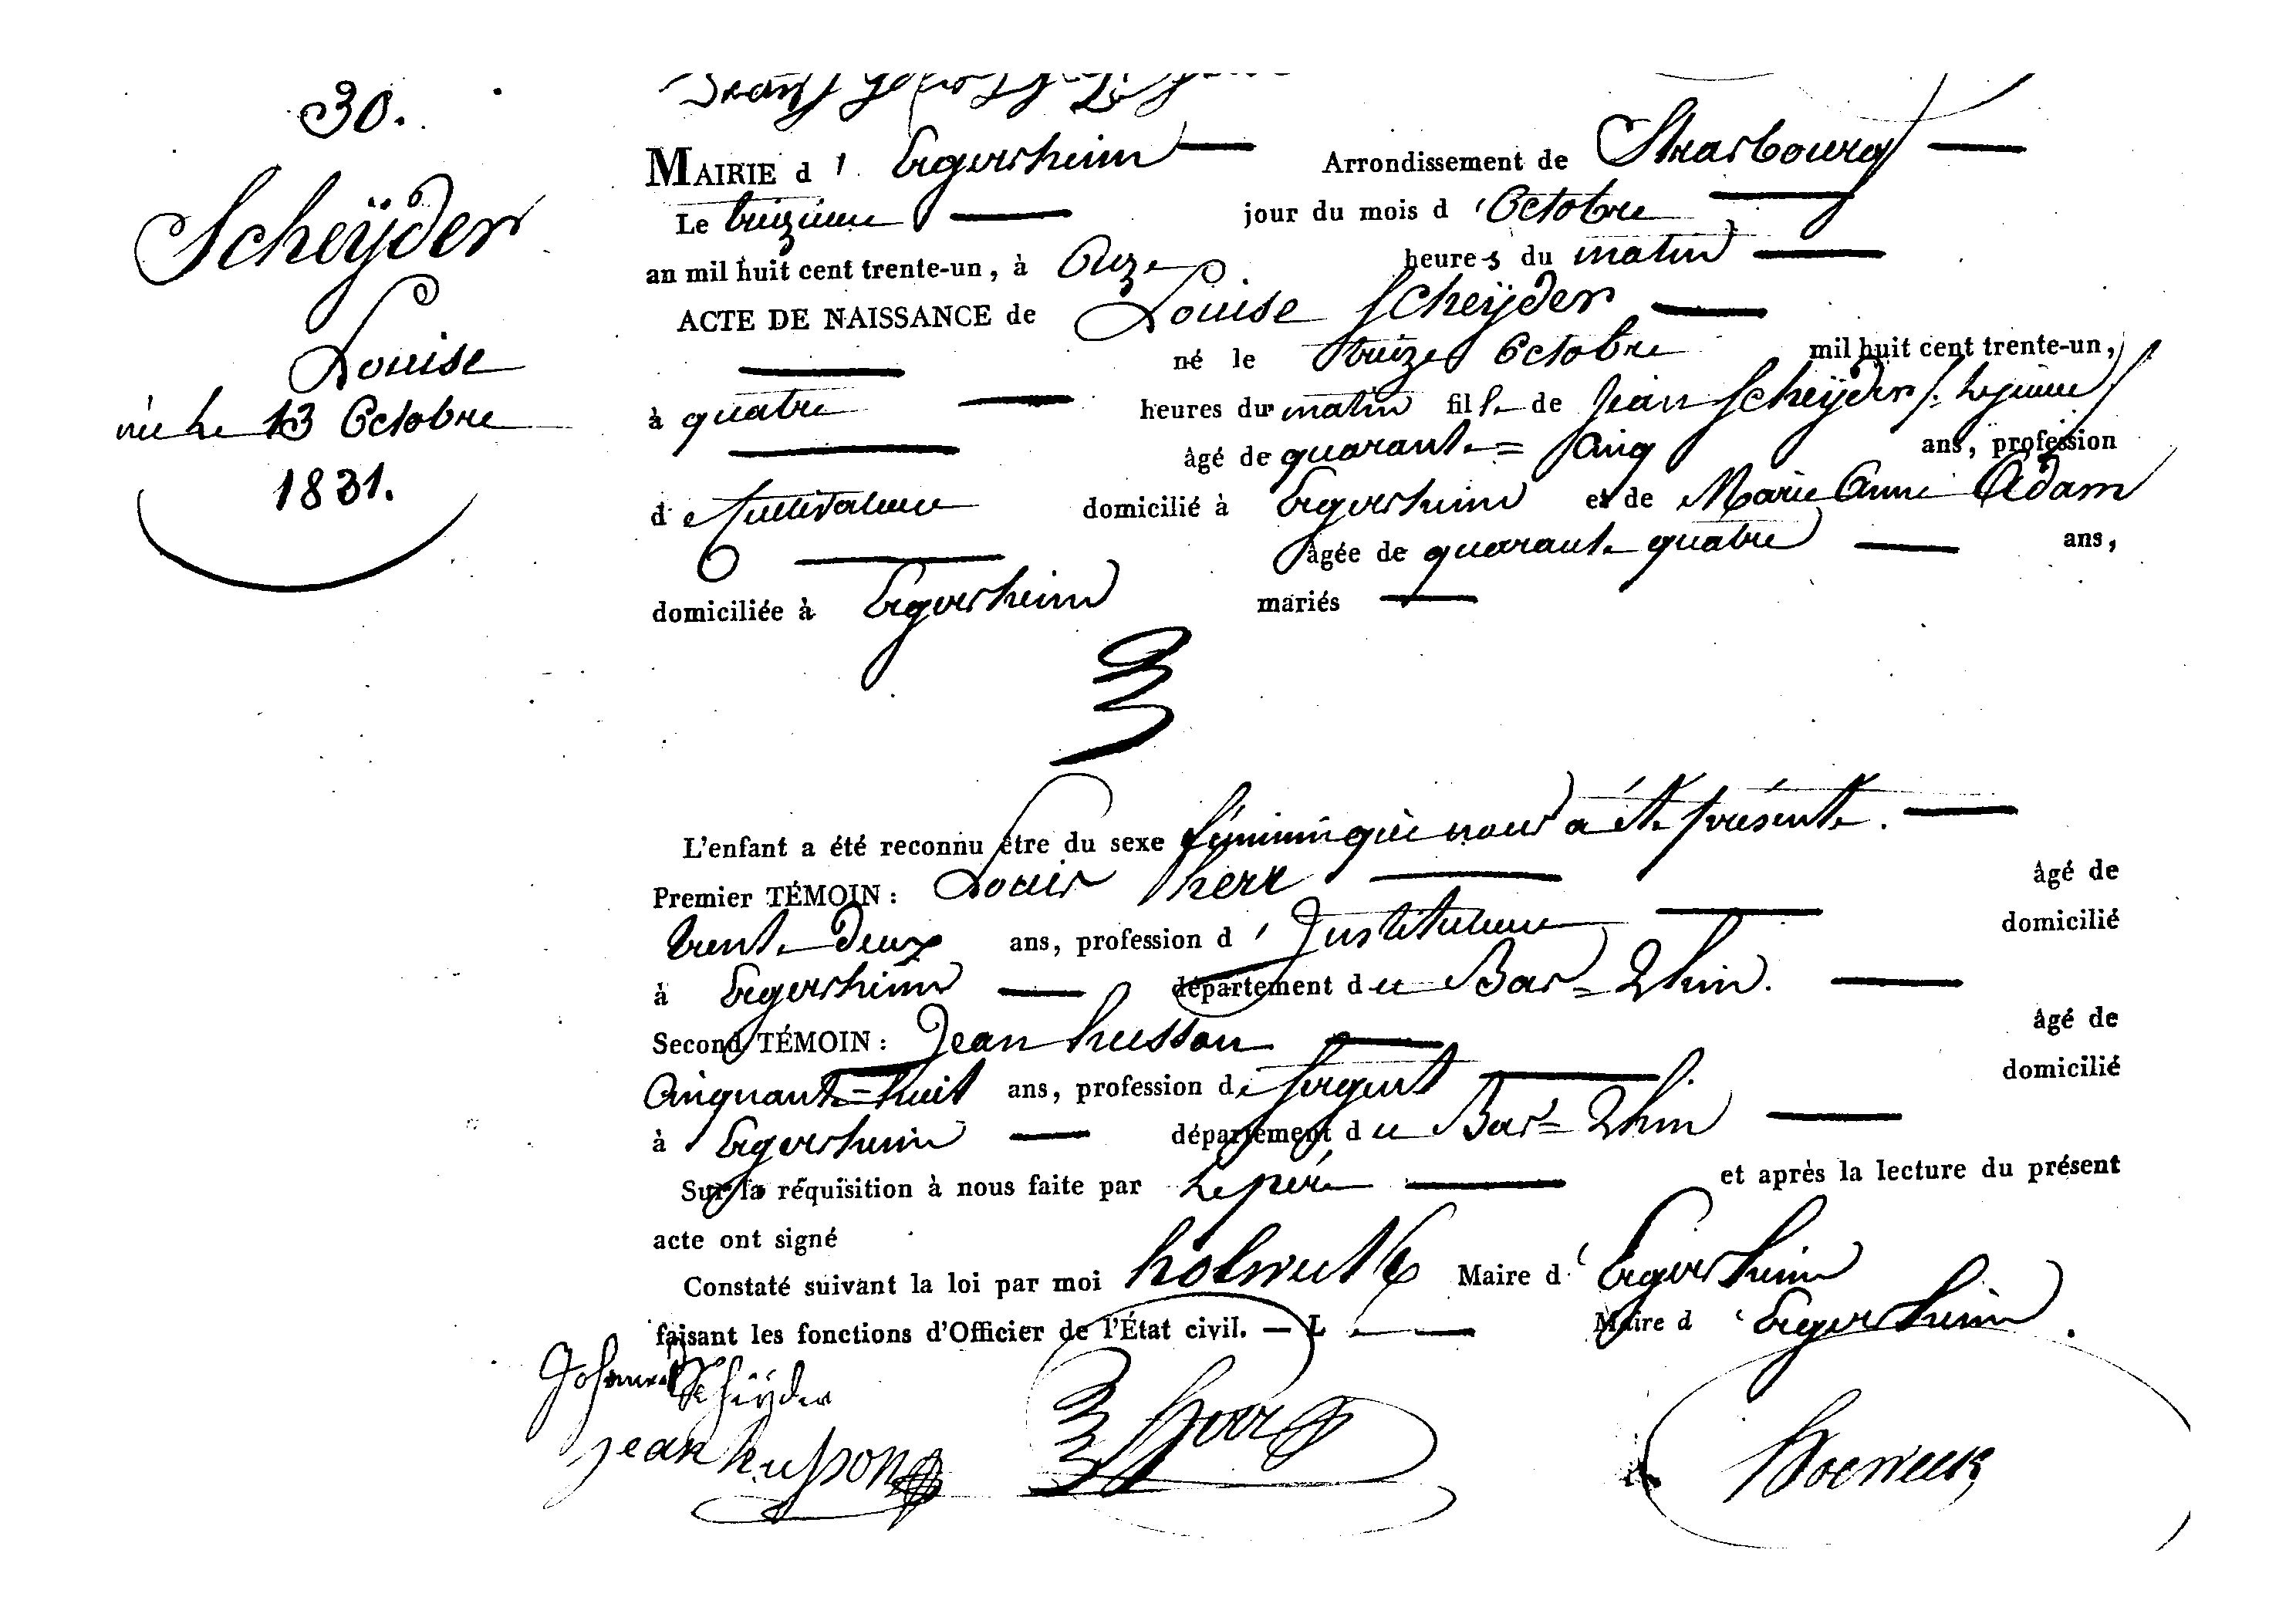 30.
Scheÿder
Louise
née le 13 Octobre
1831.
MAIRIE d' Ergersheim Arrondissement de Strasbourg
Le treizieme jour du mois d'Octobre
an mil huit cent trente-un, à Onze heures du matin
ACTE DE NAISSANCE de Louise Scheÿder
né le treize Octobre mil huit cent trente-un,
à quatre heures du matin fille de Jean Scheÿder /: le jeune /
âgé de quarante=Cinq ans, profession
de Cultivateur domicilié à Ergersheim et de Marie Anne Adam
âgée de quarante quatre ans,
domiciliée à Ergersheim mariés
L'enfant a été reconnu être du sexe féminin qui nous a été présenté.
Premier TÉMOIN : Louis herr âgé de
trente deux ans, profession d'Instituteur domicilié
à Ergersheim département du Bas=Rhin.
Second TÉMOIN : Jean husson âgé de
Cinquante=huit ans, profession de sergent domicilié
à Ergersheim département du Bas=Rhin
Sur la réquisition à nous faite par le père et après la lecture du présent
acte ont signé
Constaté suivant la loi par moi Maire d'Ergersheim
faisant les fonctions d'Officier de l'État civil. — L Maire d'Ergersheim.
Johannes Scheÿder
jean husson
herr